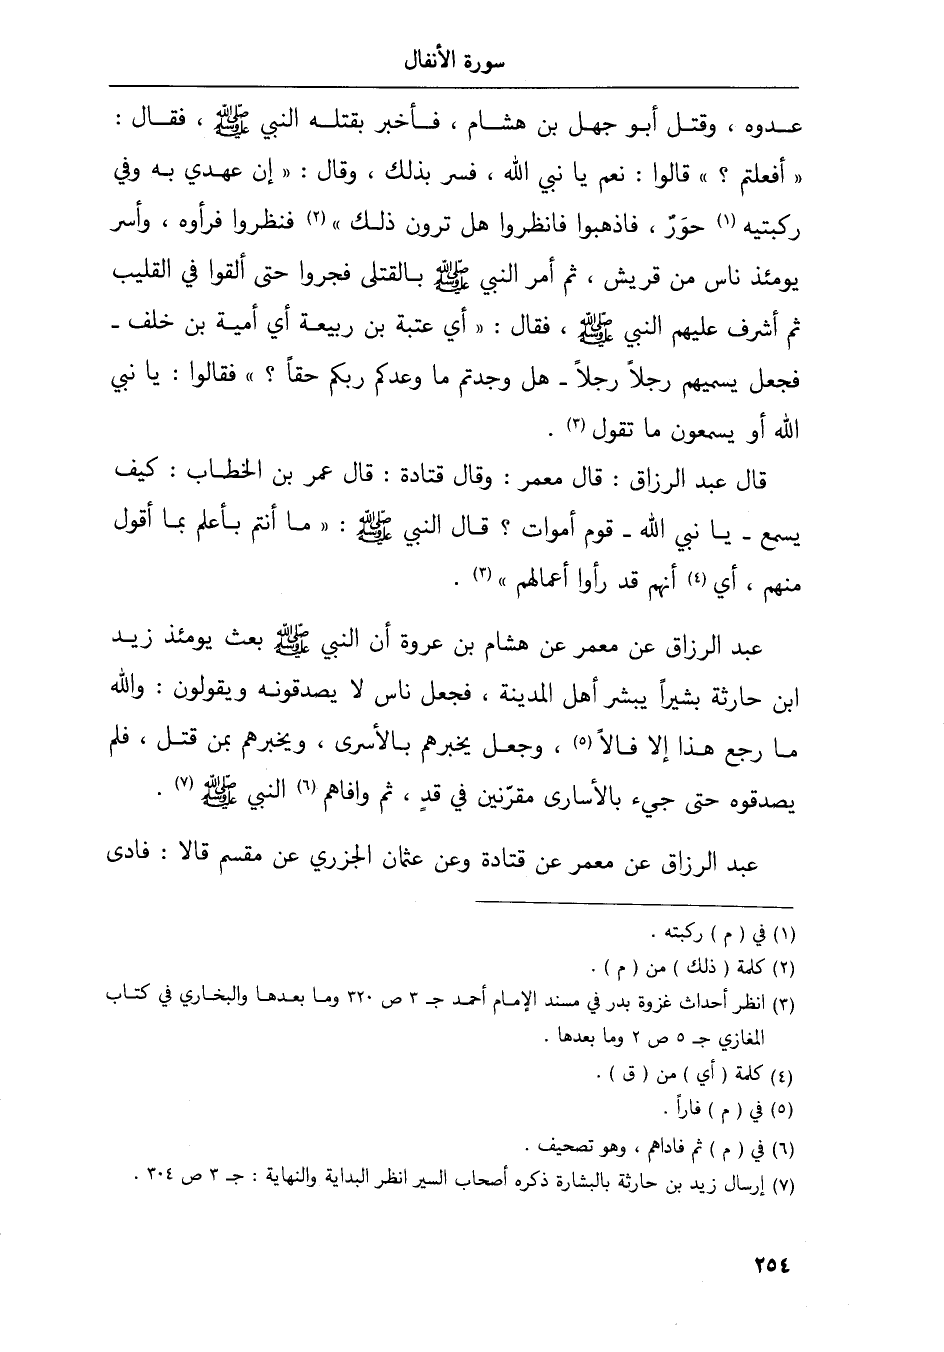 سورة الأنفال
عـدوه ، وقتـل أبـو جهـل بن هشـام ، فـأخبر بقتلـه النبي ﷺ ، فقـال :
« أفعلتم ؟ » قالوا : نعم يا نبي الله ، فسر بذلك ، وقال : « إن عهـدي بـه وفي
ركبتيه (١) حوَرٌ ، فاذهبوا فانظروا هل ترون ذلـك » (٢) فنظروا فرأوه ، وأسر
يومئذ ناس من قريش ، ثم أمر النبي ﷺ بـالقتلى فجروا حتى ألقوا في القليب
ثم أشرف عليهم النبي ﷺ ، فقال : « أي عتبة بن ربيعـة أي أميـة بن خلف ـ
فجعل يسميهم رجلاً رجلاً ـ هل وجدتم ما وعدكم ربكم حقاً ؟ » فقالوا : يا نبي
الله أو يسمعون ما تقول (٣) .
قال عبد الرزاق : قال معمر : وقال قتادة : قال عمر بن الخطـاب : كيف
يسمع ـ يـا نبي الله ـ قوم أموات ؟ قـال النبي ﷺ : « مـا أنتم بـأعلم بمـا أقول
منهم ، أي (٤) أنهم قد رأوا أعمالهم » (٣) .
عبد الرزاق عن معمر عن هشام بن عروة أن النبي ﷺ بعث يومئذ زيـد
ابن حارثة بشيراً يبشر أهل المدينة ، فجعل ناس لا يصدقونـه ويقولون : والله
مـا رجع هـذا إلا فـالاً (٥) ، وجعـل يخبرهم بـالأسرى ، ويخبرهم بمن قتـل ، فلم
يصدقوه حتى جيء بالأسارى مقرّنين في قدٍ ، ثم وافاهم (٦) النبي ﷺ (٧) .
عبد الرزاق عن معمر عن قتادة وعن عثمان الجزري عن مقسم قالا : فادى
(١) في ( م ) ركبته .
(٢) كلمة ( ذلك ) من ( م ) .
(٣) انظر أحداث غزوة بدر في مسند الإمـام أحمـد جـ ٣ ص ٣٢٠ ومـا بعـدهـا والبخـاري في كتـاب
المغازي جـ ٥ ص ٢ وما بعدها .
(٤) كلمة ( أي ) من ( ق ) .
(٥) في ( م ) فاراً .
(٦) في ( م ) ثم فاداهم ، وهو تصحيف .
(٧) إرسال زيد بن حارثة بالبشارة ذكره أصحاب السير انظر البداية والنهاية : جـ ٣ ص ٣٠٤ .
٢٥٤